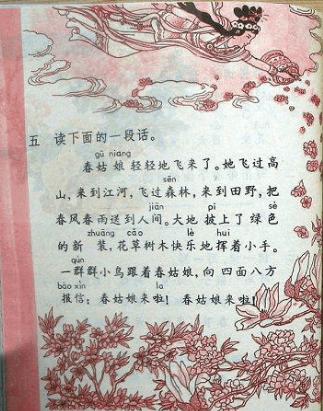 五 读下面的一段话。
gū niang
春姑娘轻轻地飞来了。她飞过高
sēn
山，来到江河，飞过森林，来到田野，把
jiān pī sè
春风春雨送到人间。大地披上了绿色
zhuāng cǎo lè huī
的新装，花草树木快乐地挥着小手。
qún
一群群小鸟跟着春姑娘，向四面八方
bào xìn la
报信：春姑娘来啦！春姑娘来啦！